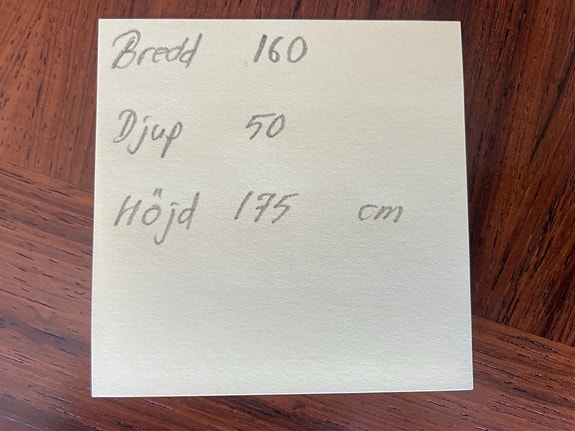 Bredd 160
Djup 50
Höjd 175 cm